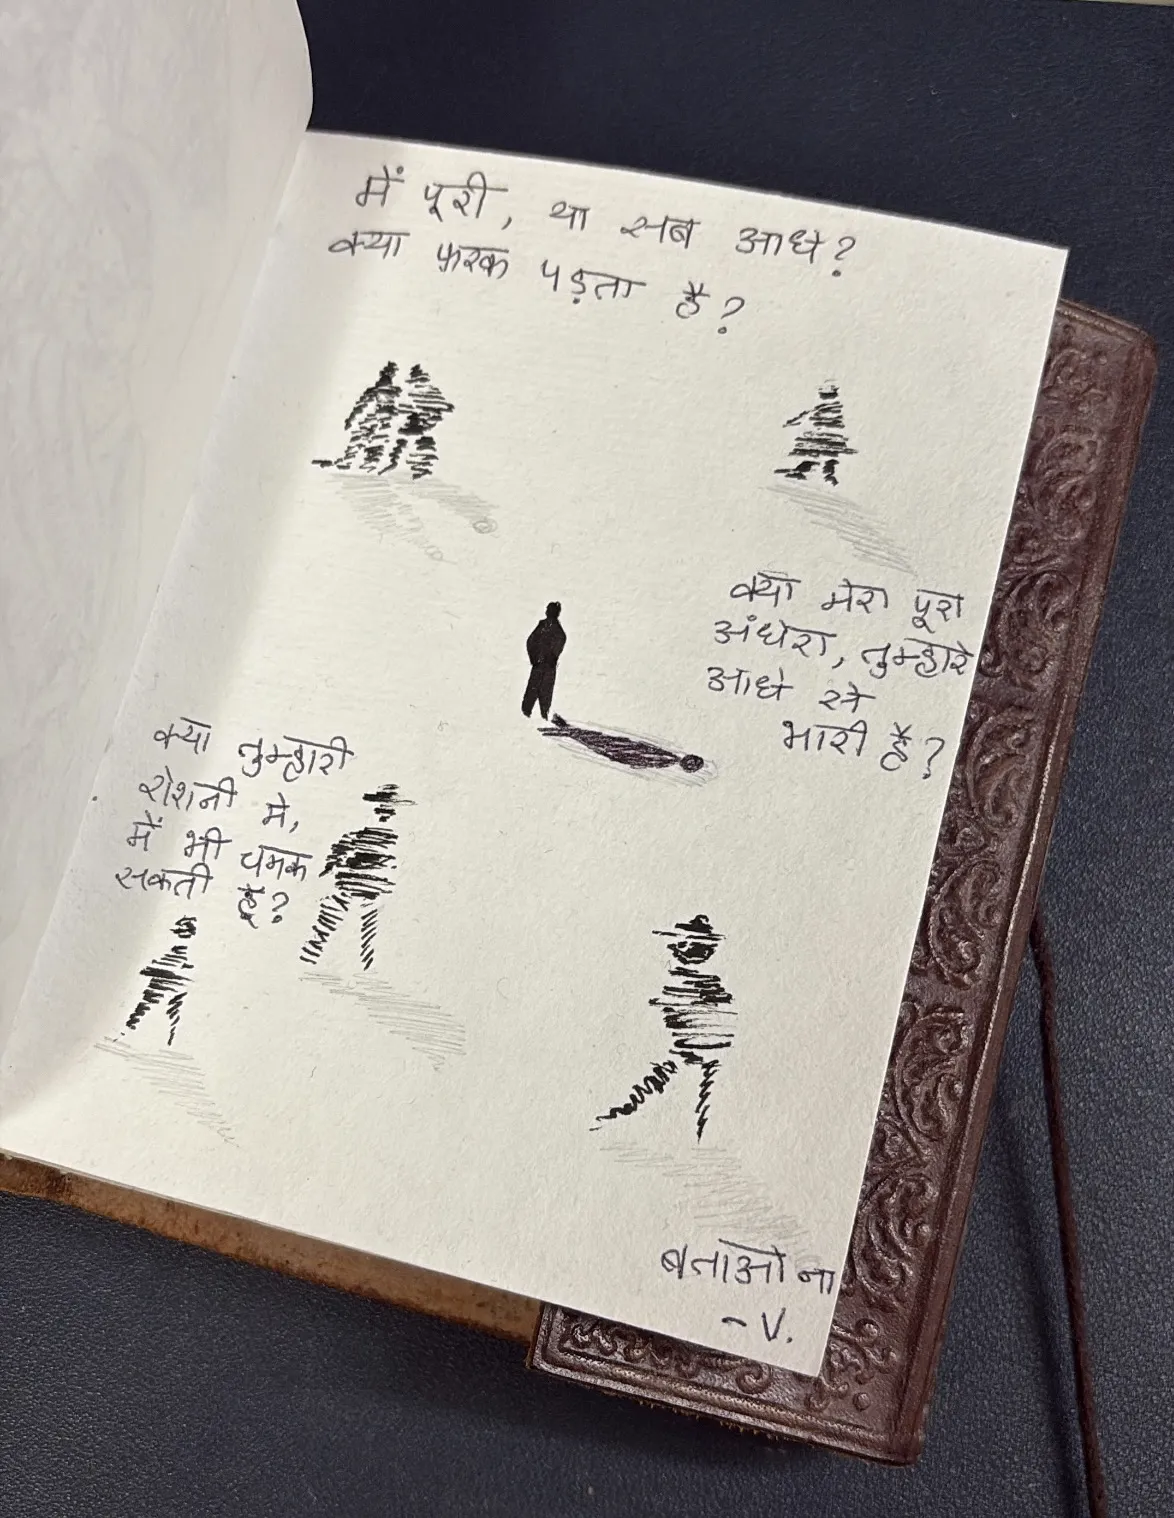 में पूरी, या सब आधे?
क्या फ़रक पड़ता है?
क्या मेरा पूरा
अंधेरा, तुम्हारे
आधे से
भारी है?
क्या तुम्हारी
रोशनी मे,
में भी चमक
सकती हूँ?
बताओ ना
- V.